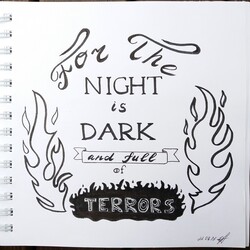 For The
NIGHT
is
DARK
and full
of
TERRORS